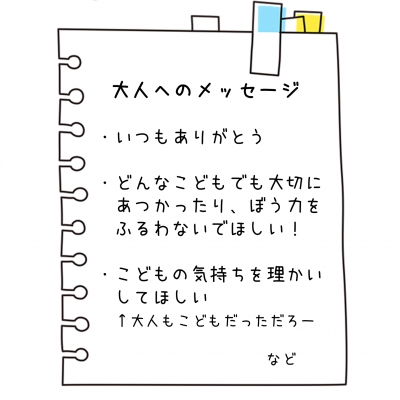 大人へのメッセージ
・いつもありがとう
・どんなこどもでも大切に
あつかったり、ぼう力を
ふるわないでほしい！
・こどもの気持ちを理かい
してほしい
↑大人もこどもだっただろー
など